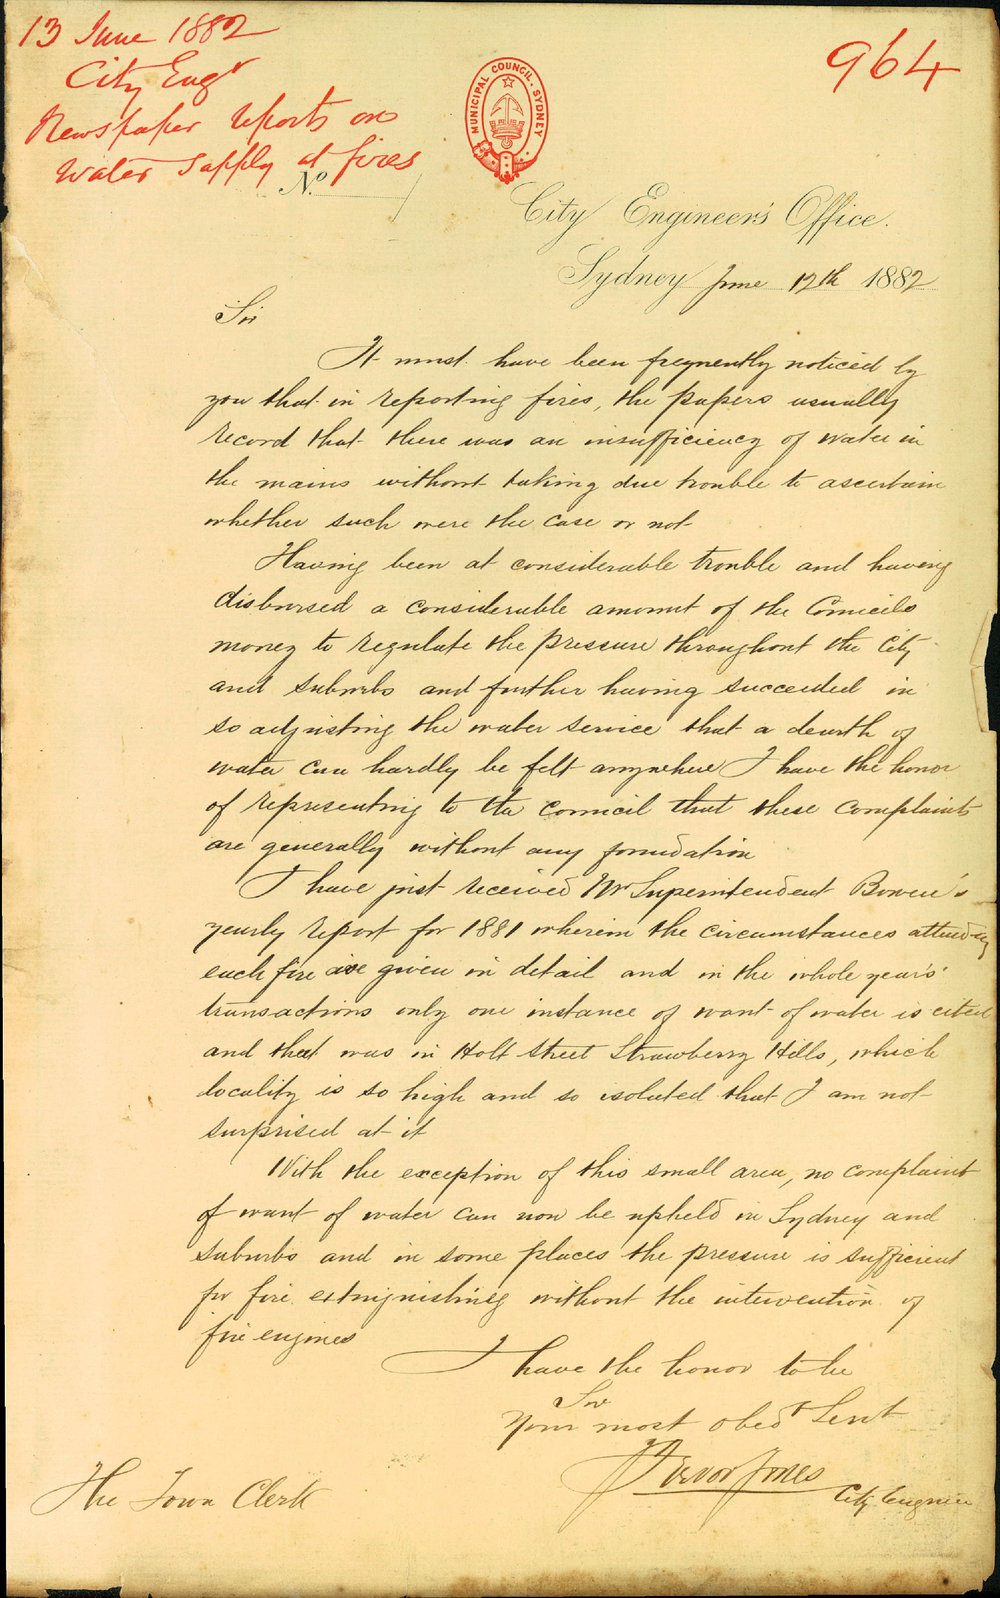 13 June 1882
City Engr
Newspaper reports on
Water Supply at fires
964
MUNICIPAL COUNCIL. SYDNEY
No.
City Engineer's Office.
Sydney June 12th 1882
Sir
It must have been frequently noticed by
you that in reporting fires, the papers usually
record that there was an insufficiency of water in
the mains without taking due trouble to ascertain
whether such were the case or not
Having been at considerable trouble and having
disbursed a considerable amount of the Councils
money to regulate the pressure throughout the City
and suburbs and further having succeeded in
so adjusting the water service that a dearth of
water can hardly be felt anywhere I have the honor
of representing to the Council that these complaints
are generally without any foundation
I have just received Mr Superintendent Bown's
yearly report for 1881 wherein the circumstances attending
each fire are given in detail and in the whole year's
transactions only one instance of want of water is cited
and that was in Holt Street Strawberry Hills, which
locality is so high and so isolated that I am not
surprised at it
With the exception of this small area, no complaint
of want of water can now be upheld in Sydney and
suburbs and in some places the pressure is sufficient
for fire extinguishing without the intervention of
fire engines
I have the honor to be
Sir
Your most obedt Servt
Trevor Jones
City Engineer
The Town Clerk